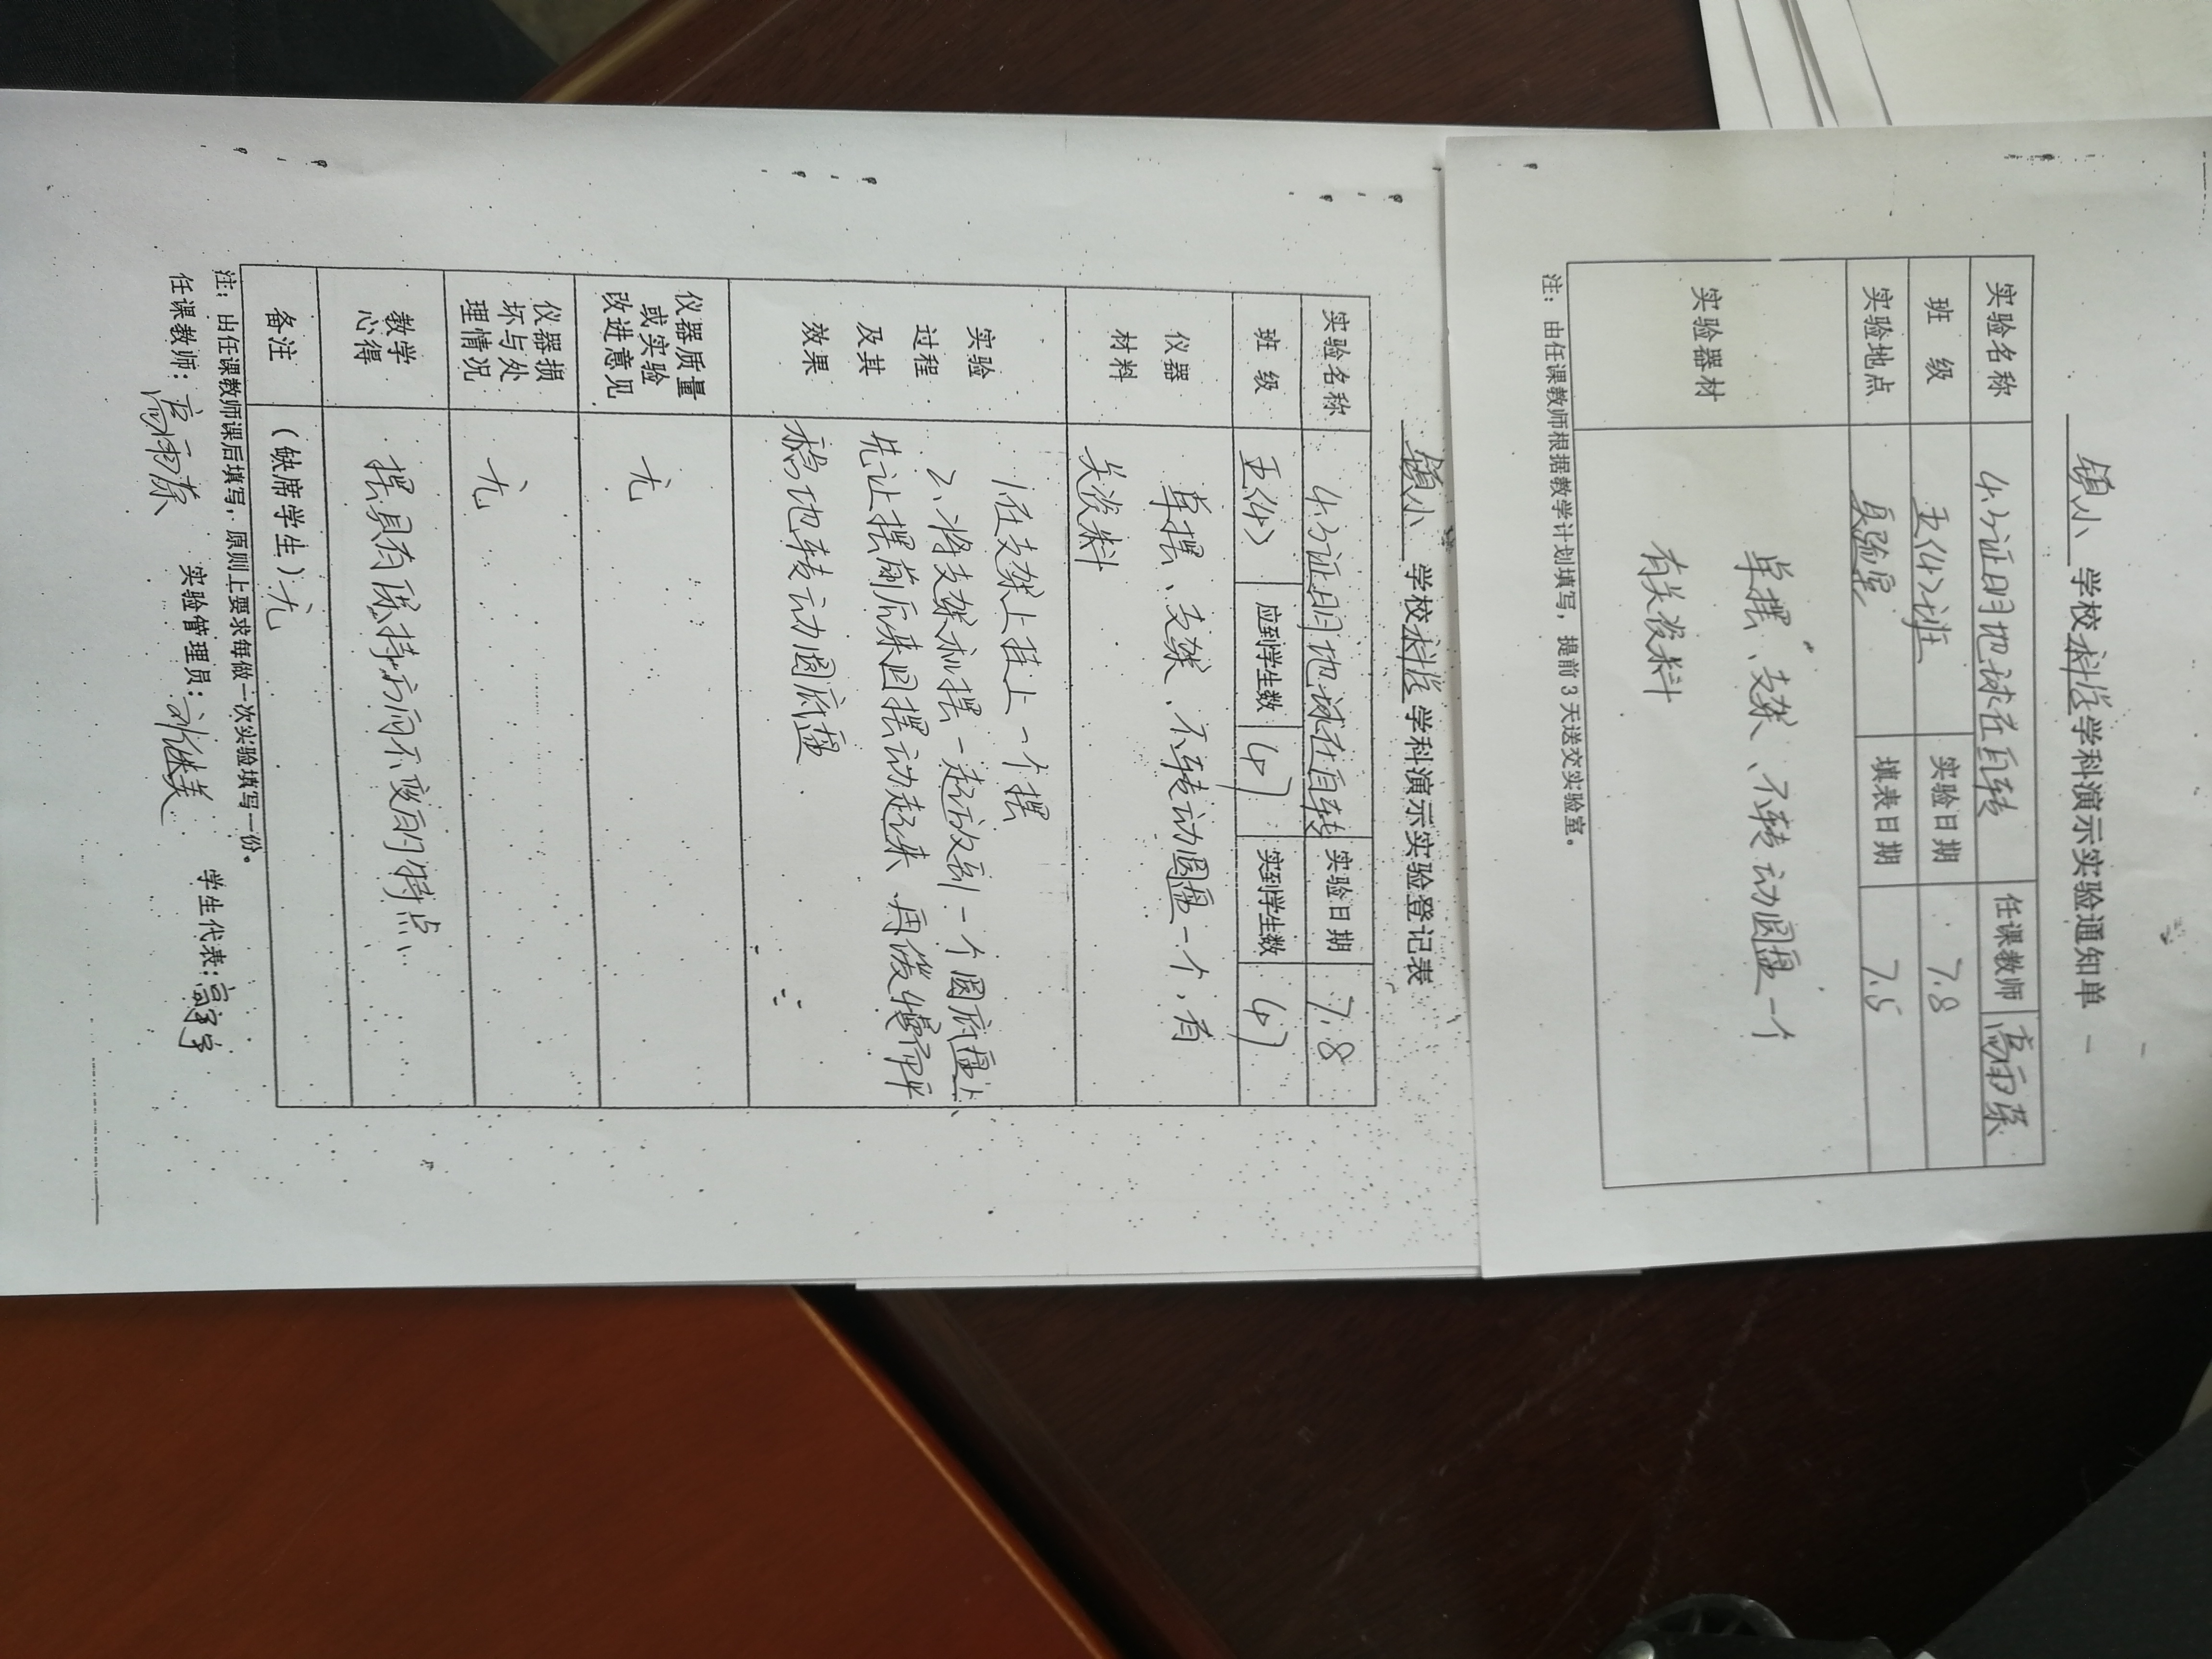 镇小 学校 科学 学科演示实验通知单
实验名称 4.3证明地球在自转 任课教师
班 级 五(4)班 实验日期 7.8
实验地点 实验室 填表日期 7.5
实验器材 单摆、支架、不转动圆盘一个
有关资料
注：由任课教师根据教学计划填写，提前3天送交实验室。
镇小 学校 科学 学科演示实验登记表
实验名称 4.3证明地球在自转 实验日期 7.8
班 级 五(4) 应到学生数 47 实到学生数 47
仪器 单摆、支架、不转动圆盘一个，有
材料 关资料
实验 1.在支架上挂上一个摆
过程 2、将支架和摆一起放到一个圆底盘上、
及其 先让摆前后来回摆动起来 再缓慢而平
效果 稳地转动圆底盘
仪器质量
或实验 无
改进意见
仪器损
坏与处 无
理情况
教学
心得 摆具有保持方向不变的特点、
备注 （缺席学生）无
注：由任课教师课后填写，原则上要求每做一次实验填写一份。
任课教师： 实验管理员： 学生代表：